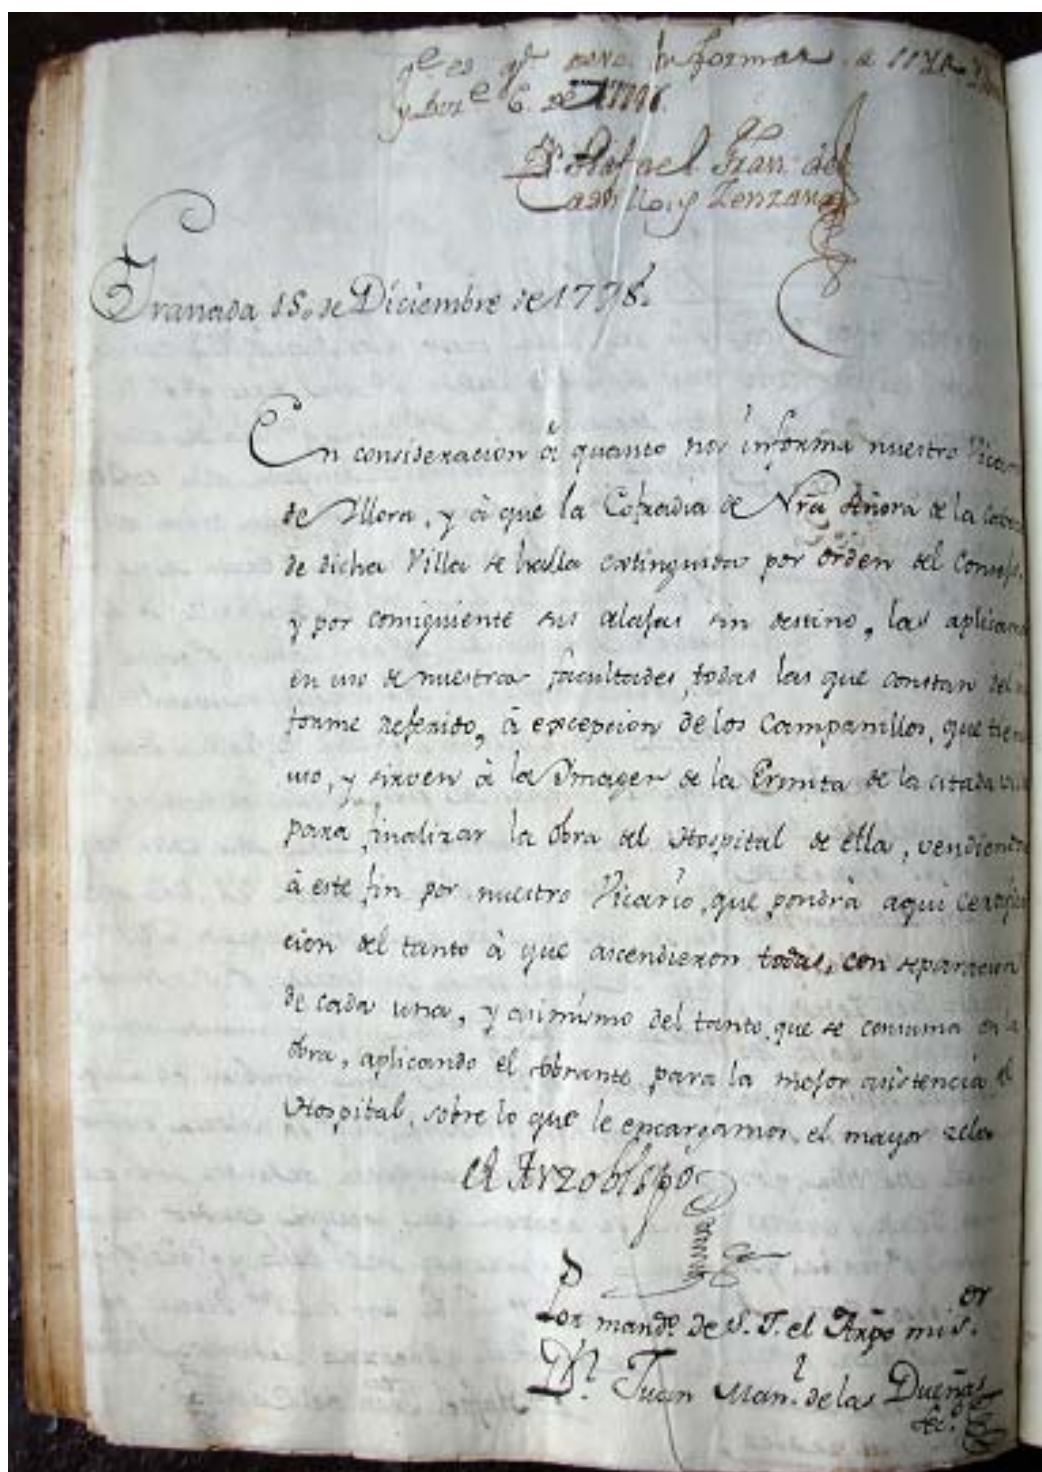 q.e es q.to devo informar. a
y Dbre 6. de
D.n Rafael Fran.co del
Castillo, y Tenzano
Granada 15. de Diciembre de 1778.
En consideracion à quanto nos informa nuestro Vicario
de Yllora, y à que la Cofradia de Nrã Señora de la
de dicha Villa se halla extinguida por orden del Consejo,
y por consiguiente sus alajas sin destino, las aplicamos
en uso de nuestras facultades, todas las que constan del in
forme referido, à excepcion de los Campanillos, que tienen
uso, y sirven à la Ymagen de la Ermita de la citada Villa
para finalizar la obra del Hospital de ella, vendiendose
à este fin por nuestro Vicario, que pondrà aqui certifica
cion del tanto à que ascendieron todas, con separacion
de cada una, y asimismo del tanto que se consuma en la
obra, aplicando el sobrante para la mejor asistencia del
Hospital, sobre lo que le encargamos el mayor zelo
el Arzobispo
Por mand.o de S. I. el Arzp̃o mi S.or
D.n Juan Man.l de las Dueñas
Sec.o